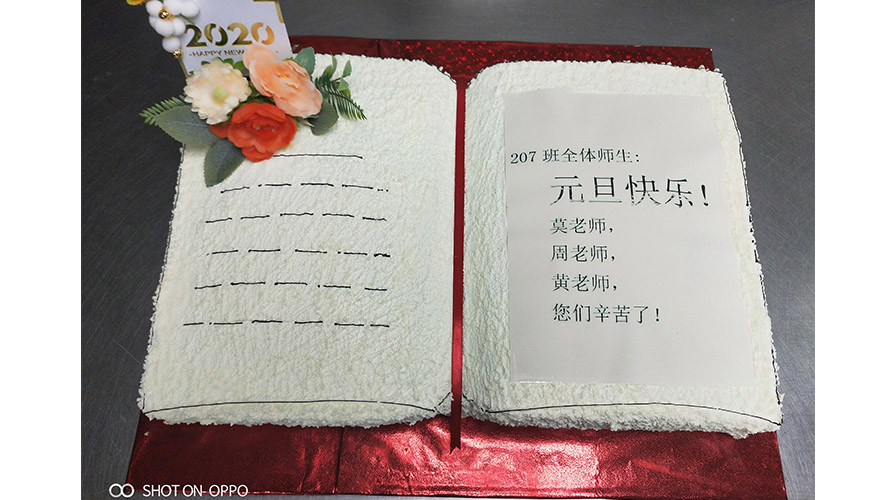 2020
HAPPY NEW
207 班全体师生:
元旦快乐!
莫老师,
周老师,
黄老师,
您们辛苦了!
SHOT ON OPPO